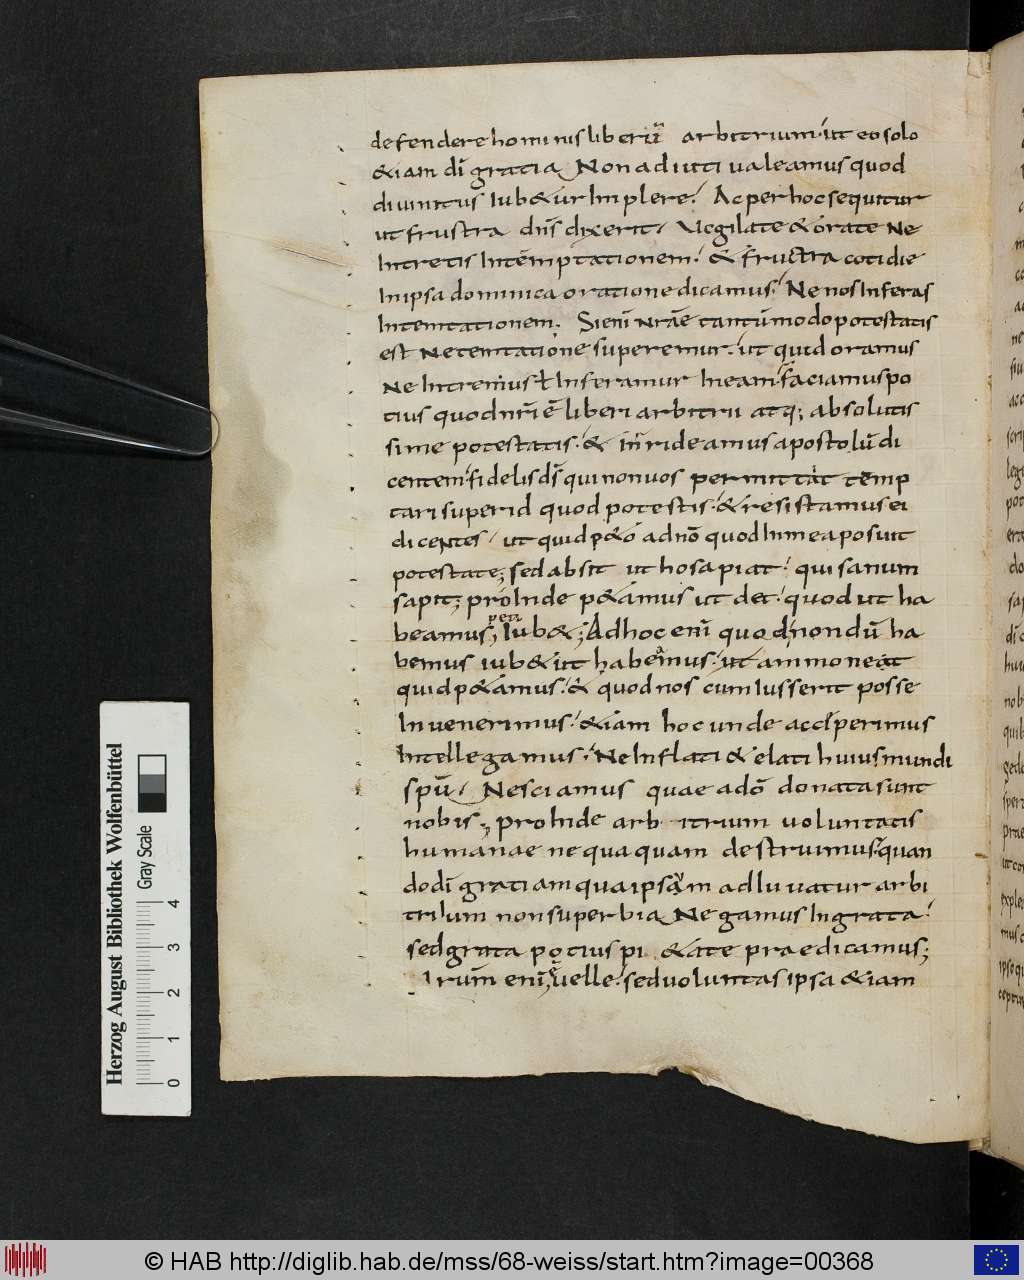 defendere hominis liberū arbitrium. ut eo solo
&iam dī gratia Non adiuti ualeamus quod
diuinitus Iub&ur Implere. Ac per hoc sequitur
ut frustra dn̄s dixerit. Uigilate & orate Ne
Intretis Intēmptationem. & frustra cotidie
In ipsa dominica oratione dicamus. Ne nos Inferas
Intemtationem. Si enī Nr̄ae tantūmodo potestatis
est Ne temtatiōne superemur. ut quid oramus
Ne Intremus ł Inferamur Ineam. faciamus po
tius quod nr̄i ē liberi arbitrii atq; absolutis
sime potestatis. & inrideamus apostolū di
centem. fidelis dš qui non uos permittat temp
tari super id quod potestis. & resistamus ei
dicentes. ut quid p&o ad nō quod In mea posuit
potestate; sed absit ut hos apiat. qui sanum
sapit; proInde p&amus ut det. quod ut ha
peti
beamus; Iub&; Ad hoc enī quod nondū ha
bemus iub& ut habeamus. ut ammoneat
quid p&amus. & quod nos cum Iusserit posse
Inuenerimus. &iam hoc unde accIperimus
Intellegamus. Ne Inflati & elati huius mundi
spū. Nesciamus quae a dō donata sunt
nobis; proInde arbitrium uoluntatis
humanae nequaquam destruimus. quan
do dī gratiam qua ipsum adIuuatur arbi
trium non superbia Negamus Ingrata.
sed grata potius pi&ate praedicamus;
Nr̄um enī uelle. sed uoluntas ipsa &iam
Herzog August Bibliothek Wolfenbüttel
Gray Scale
0 1 2 3 4
© HAB http://diglib.hab.de/mss/68-weiss/start.htm?image=00368